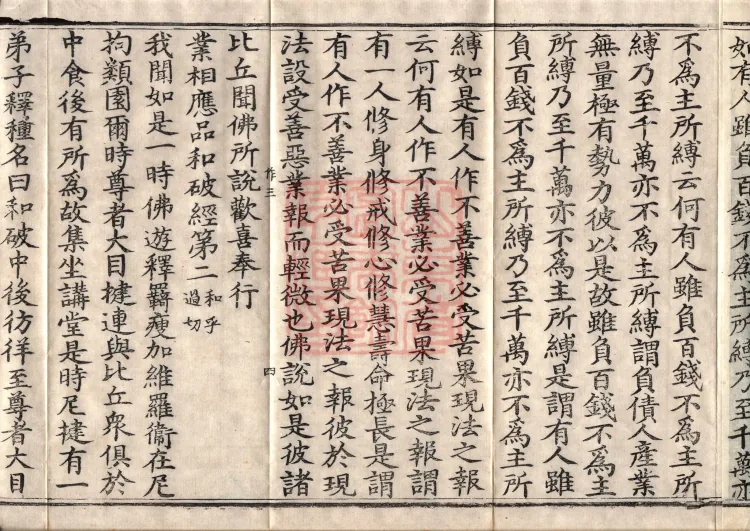 如有人雖負百錢不爲主所縛乃至千萬亦
不爲主所縛云何有人雖負百錢不爲主所
縛乃至千萬亦不爲主所縛謂負債人産業
無量極有勢力彼以是故雖負百錢不爲主
所縛乃至千萬亦不爲主所縛是謂有人雖
負百錢不爲主所縛乃至千萬亦不爲主所
縛如是有人作不善業必受苦果現法之報
云何有人作不善業必受苦果現法之報謂
有一人修身修戒修心修慧壽命極長是謂
有人作不善業必受苦果現法之報彼於現
法設受善惡業報而輕微也佛說如是彼諸
作三 四
比丘聞佛所說歡喜奉行
業相應品和破經第二和乎過切
我聞如是一時佛遊釋羇瘦加維羅衞在尼
拘類園爾時尊者大目揵連與比丘衆俱於
中食後有所爲故集坐講堂是時尼揵有一
弟子釋種名曰和破中後彷徉至尊者大目